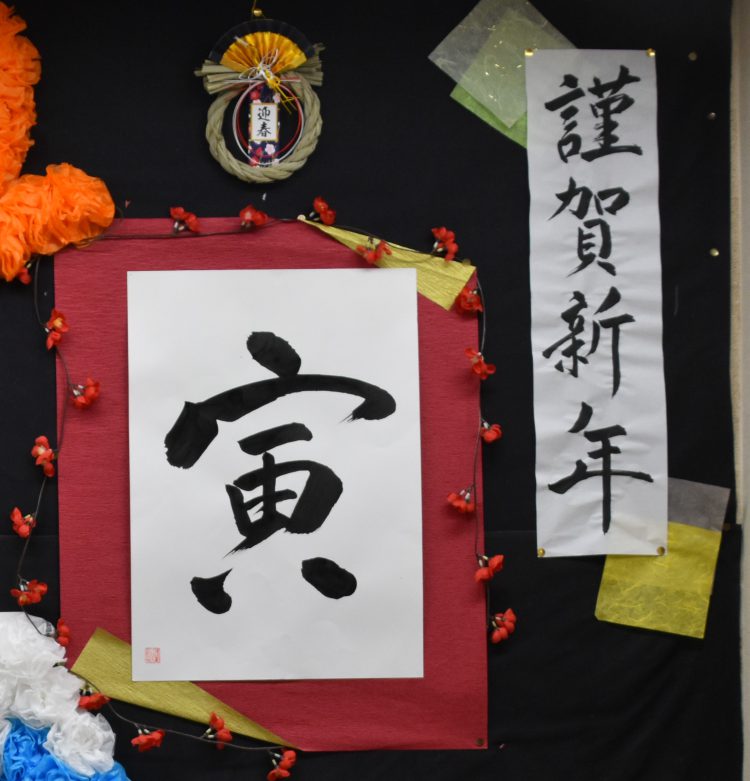 謹賀新年
迎春
寅